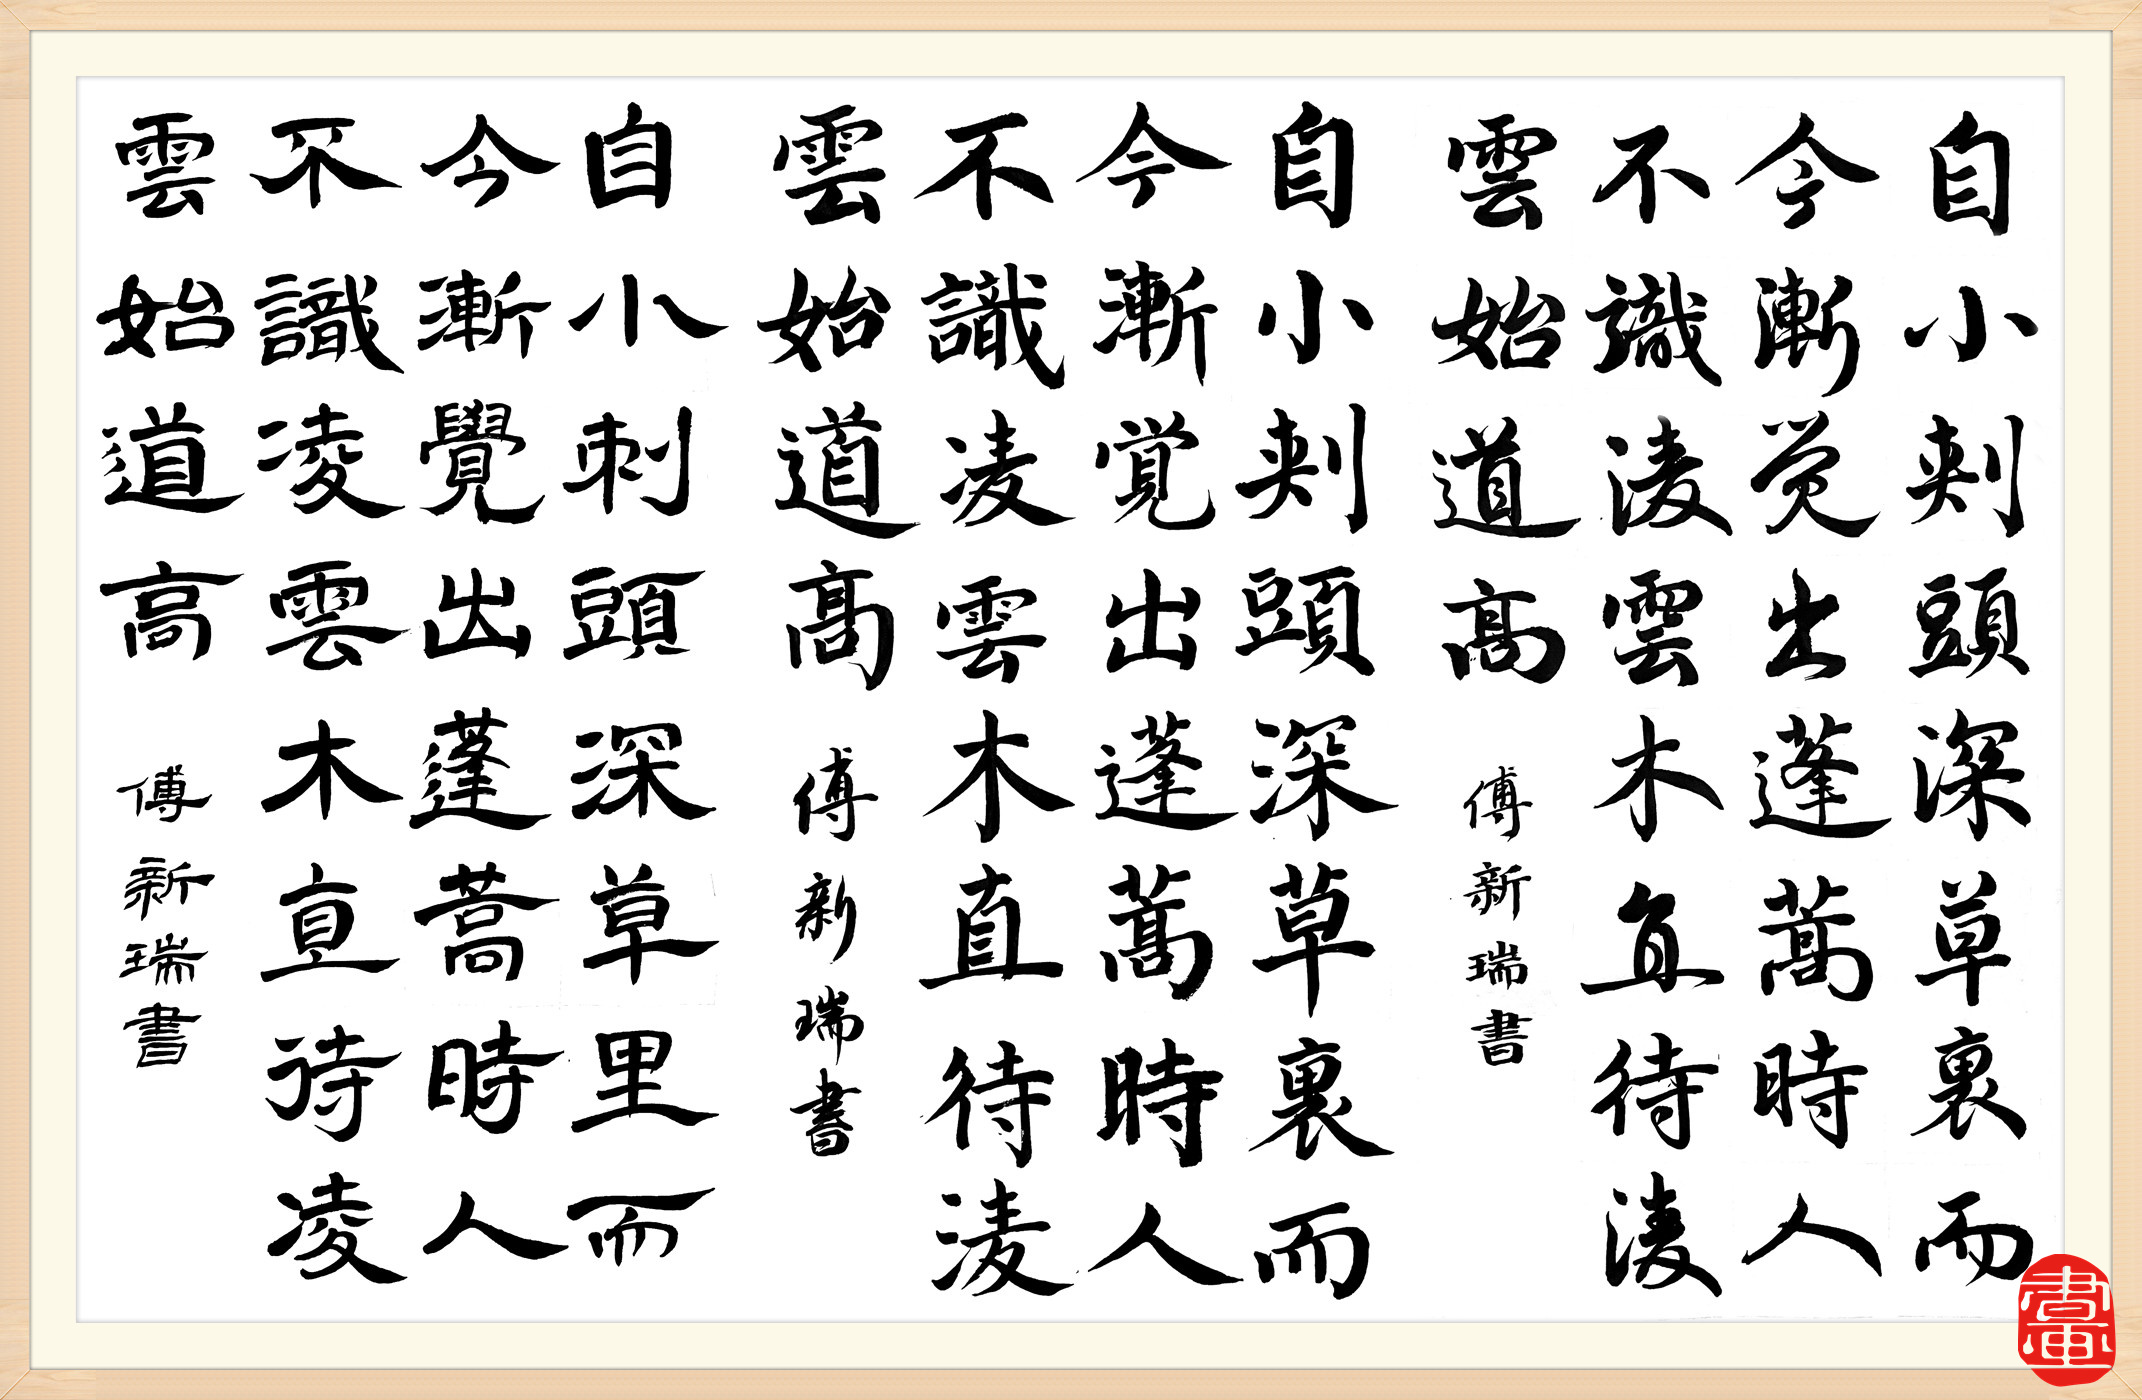 自小刾頭深草裏而
今漸觉出蓬蒿時人
不識淩雲木直待淩
雲始道髙
傅新瑞書
自小刾頭深草裏而
今漸覚出蓬蒿時人
不識凌雲木直待淩
雲始道髙
傅新瑞書
自小刺頭深草里而
今漸覺出蓬蒿時人
不識凌雲木直待凌
雲始道高
傅新瑞書
書畫